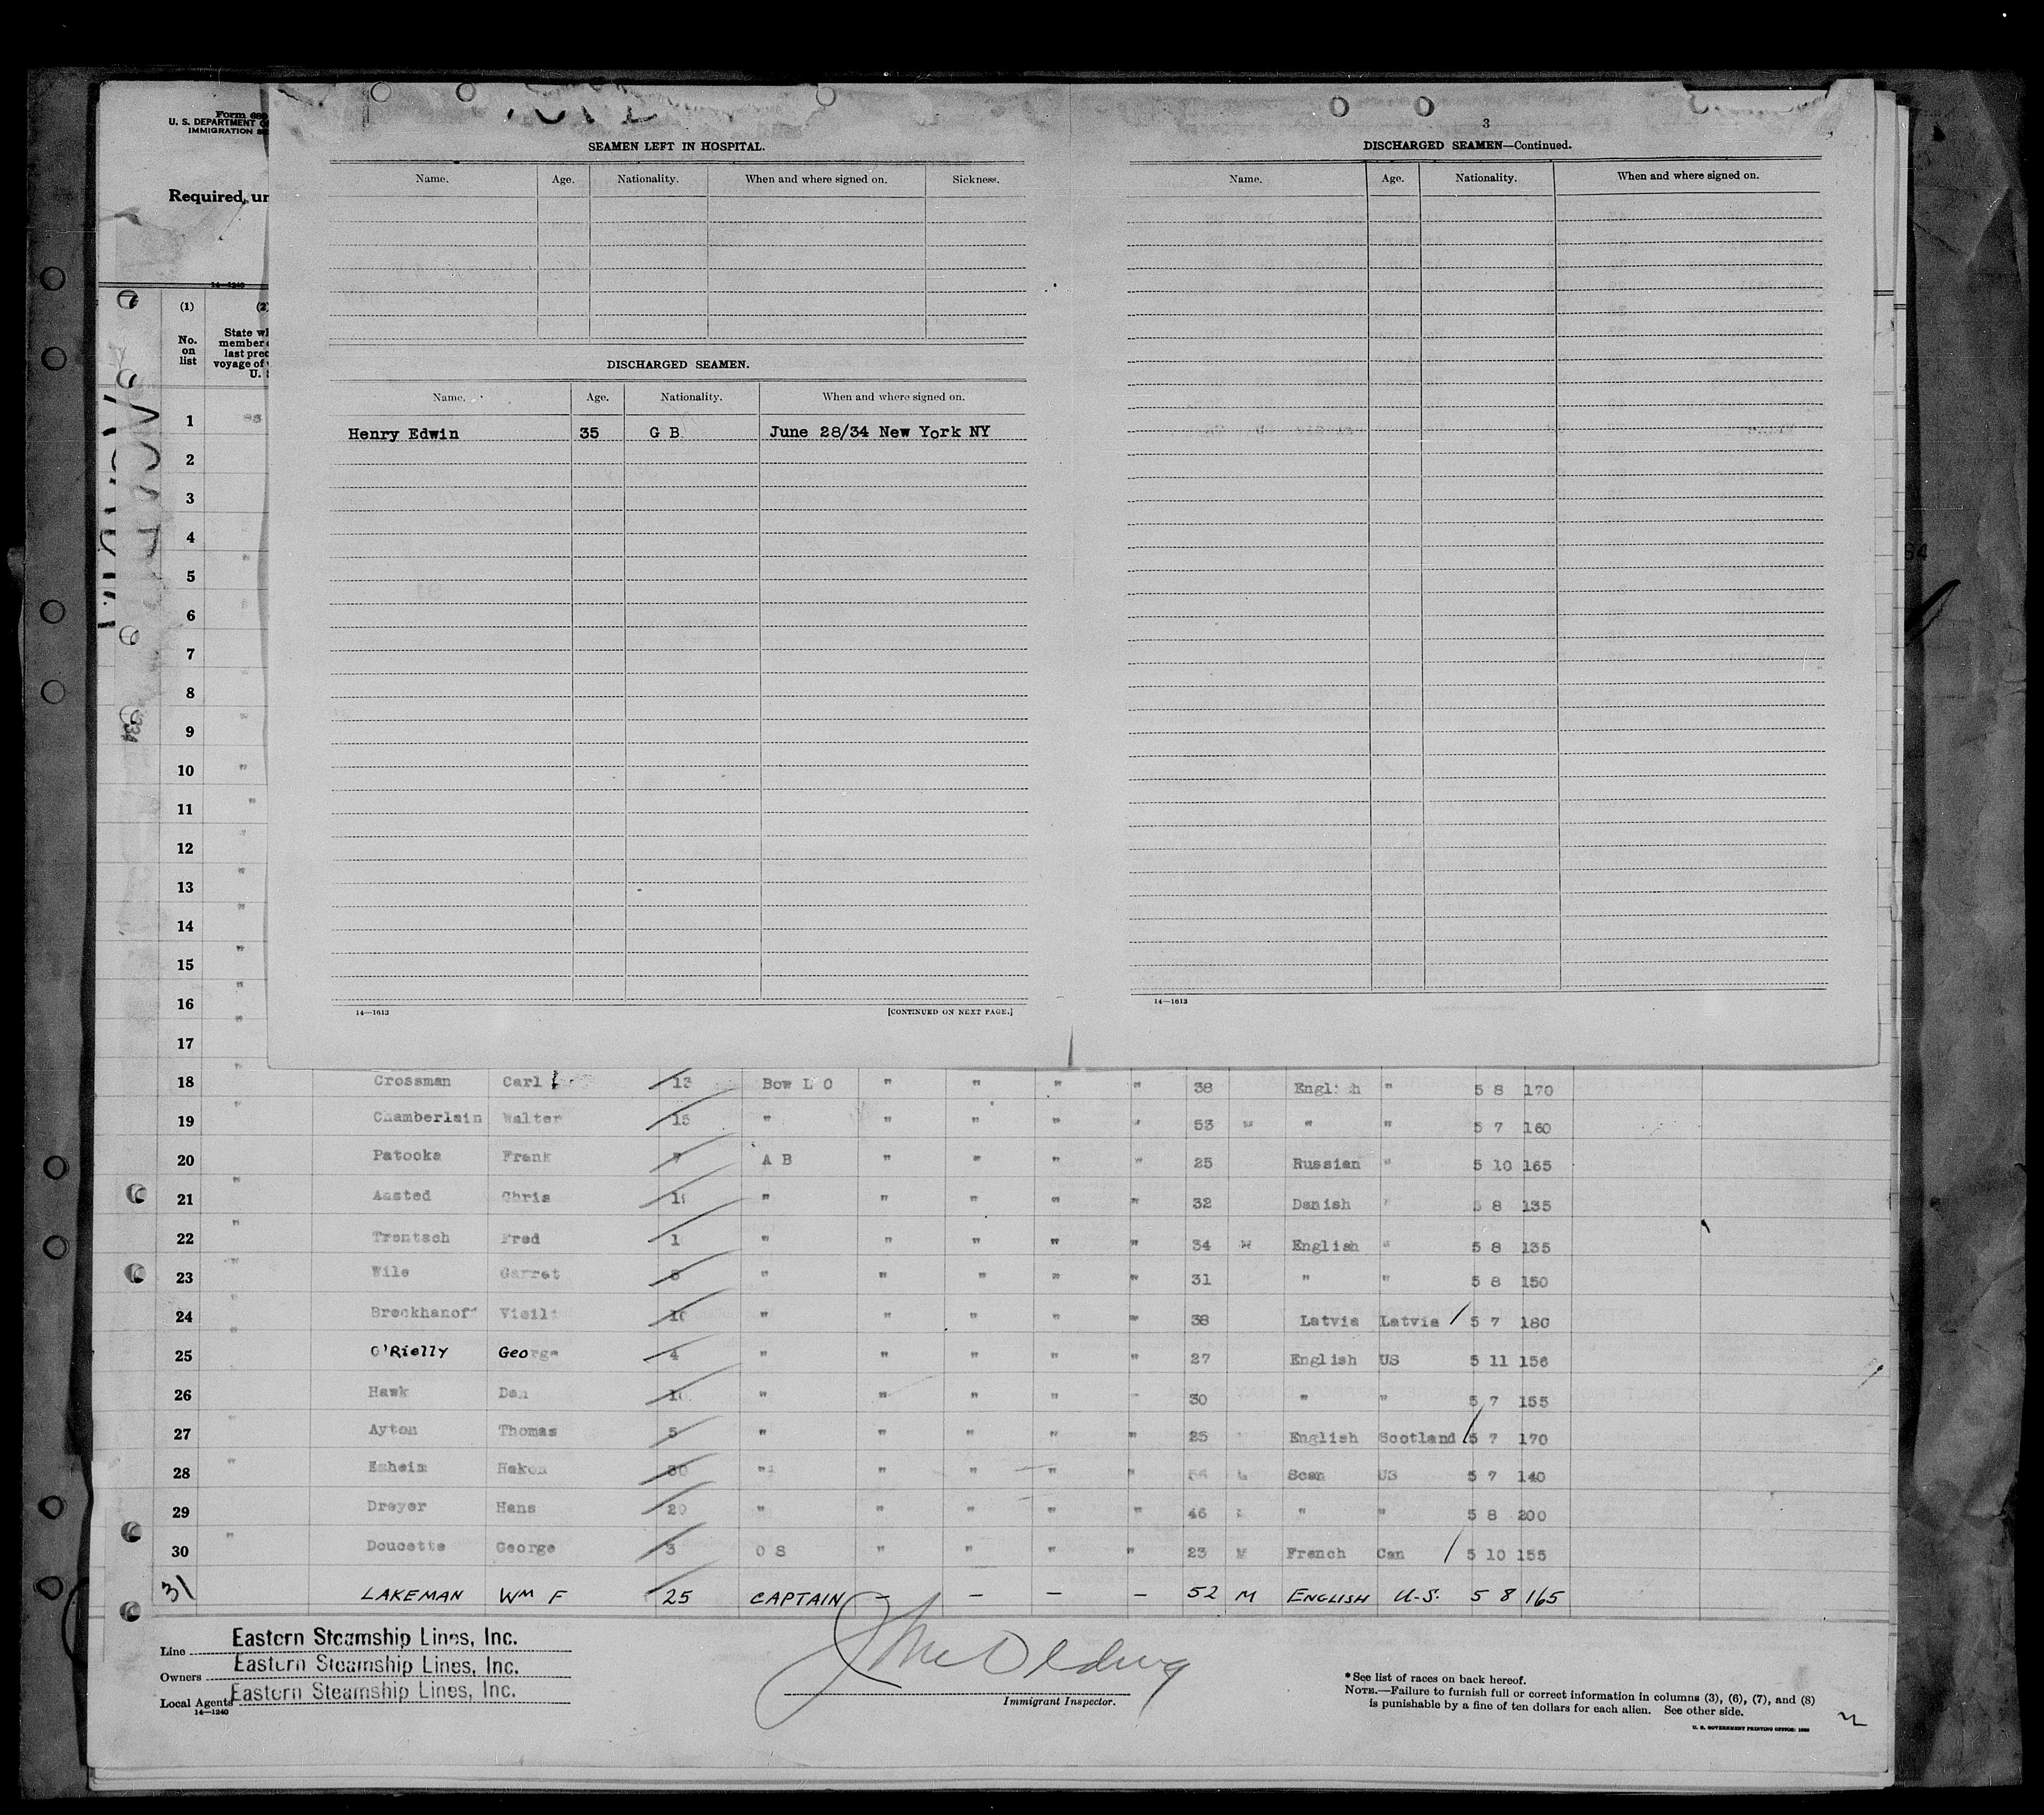 Form 680
U. S. DEPARTMENT
IMMIGRATION
Required, un
14—1240
(1)
No. on list
State wh
member
last prec
voyage of
U. S
3
SEAMEN LEFT IN HOSPITAL.
Name. Age. Nationality. When and where signed on. Sickness.
DISCHARGED SEAMEN.
Name. Age. Nationality. When and where signed on.
Henry Edwin 35 G B June 28/34 New York NY
14—1613 [CONTINUED ON NEXT PAGE.]
DISCHARGED SEAMEN—Continued.
Name. Age. Nationality. When and where signed on.
14—1613
1
2
3
4
5
6
7
8
9
10
11
12
13
14
15
16
17
18 Crossman Carl 13 Bow L O " " " " 38 English " 5 8 170
19 " Chamberlain Walter 15 " " " " " 53 " " " 5 7 160
20 Patocka Frank 7 A B " " " " 25 Russian " 5 10 165
21 " Aasted Chris " " " " " 32 Danish " 5 8 135
22 " Trentsch Fred 1 " " " " " 34 " English " 5 8 135
23 " Wile Garret " " " " " 31 " " 5 8 150
24 " Breckhanoff " " " " " 38 Latvia Latvia / 5 7 180
25 " O'Rielly George 4 " " " " " 27 English US 5 11 156
26 Hawk Dan " " " " " 30 " " 5 7 155
27 " Ayton Thomas 5 " " " " " 25 English Scotland / 5 7 170
28 " Hakon 30 " " " " " 56 Scan US 5 7 140
29 Dreyer Hans 20 " " " " " 46 " " 5 8 200
30 " Doucette George 3 O S " " " " 23 M French Can / 5 10 155
31 LAKEMAN WM F 25 CAPTAIN – – – – 52 M ENGLISH U.S. 5 8 165
Line Eastern Steamship Lines, Inc.
Owners Eastern Steamship Lines, Inc.
Local Agents Eastern Steamship Lines, Inc.
14—1240
Immigrant Inspector.
*See list of races on back hereof.
NOTE.—Failure to furnish full or correct information in columns (3), (6), (7), and (8)
is punishable by a fine of ten dollars for each alien. See other side.
U. S. GOVERNMENT PRINTING OFFICE: